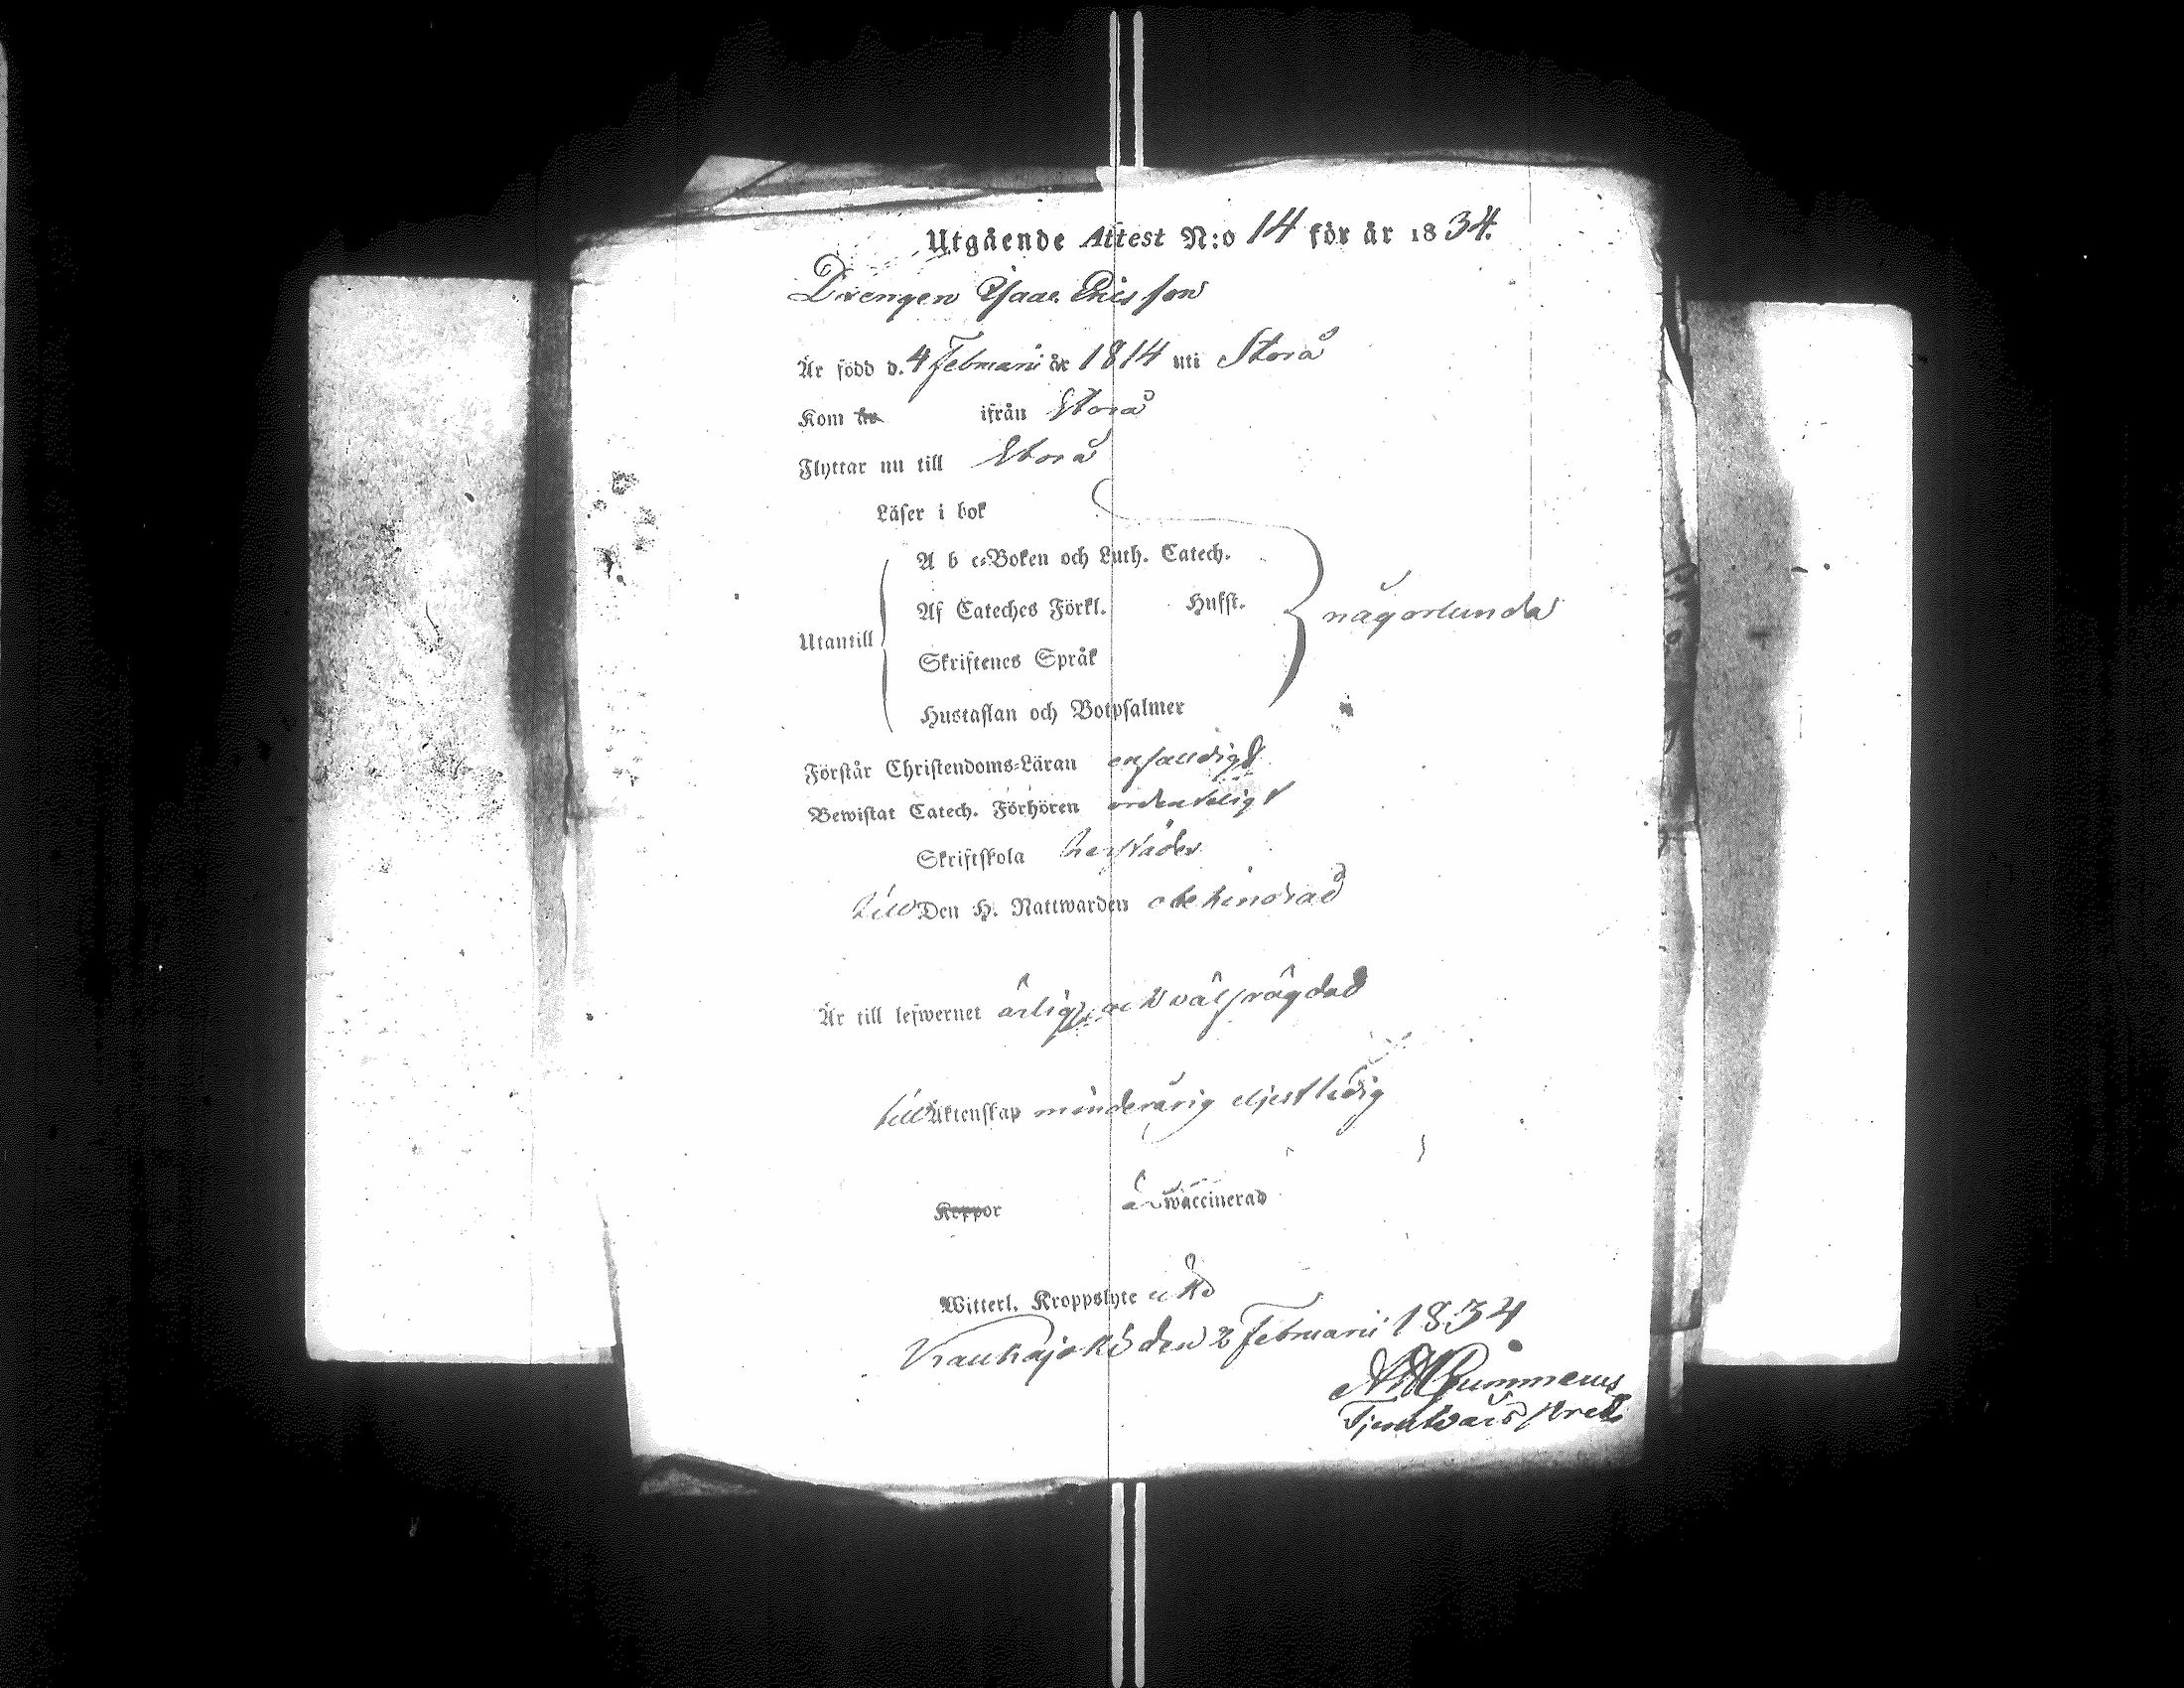 Utgående Attest N:o 14 för år 1834.
Drengen Isaac Ericsson
Är född d. 4 Februarii år 1814 uti Storå
Kom år ifrån Storå
Flyttar nu till Storå
Läser i bok
A b c-Boken och Luth. Catech.
Af Cateches Förkl. Hufst. någorlunda
Utantill
Skriftenes Språk
Hustaflan och Botpsalmer
Förstår Christendoms-Läran enfaldigt
Bewistat Catech. Förhören ordenteligt
Skriftskola
till Den H. Nattwarden obehindrad
Är till lefwernet ärlig och välfrägdad
till Äktenskap minderårig eljest ledig
Koppor är waccinerad
Witterl. Kroppslyte
den 2 Februarii 1834